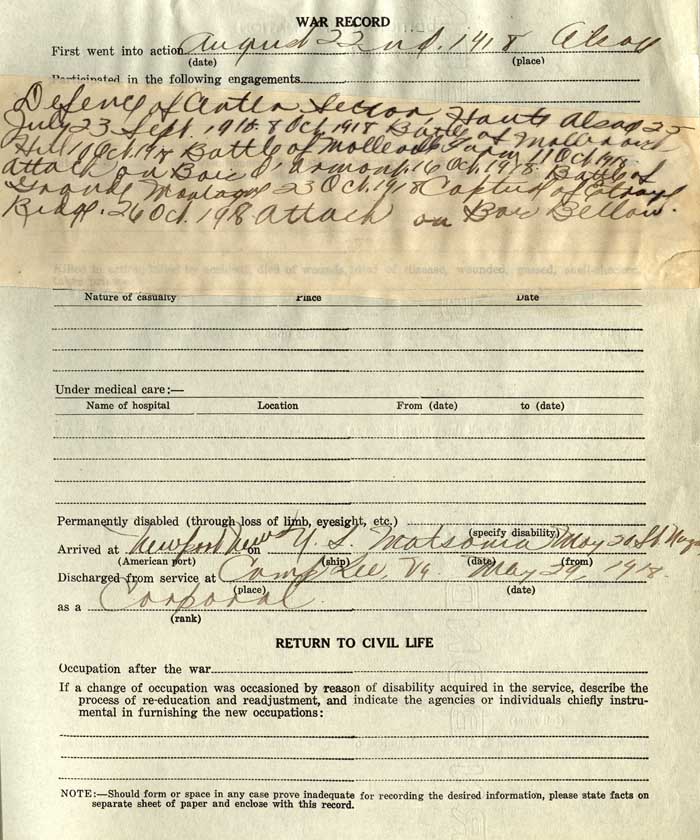 WAR RECORD
First went into action August 22nd. 1918 Alsac
(date) (place)
Participated in the following engagements
Defence of Center Sector, Haute Alsac 25
July 23 Sept. 1918. 8 Oct. 1918 Battle of
Hill 10 Oct. 1918 Battle of Molleville Farm 11 Oct. 1918
attack on Bois d'ormont, 16 Oct. 1918. Battle of
Grande Montagne 23 Oct. 1918 Capture of Etraye
Ridge. 26 Oct. 1918 attack on Bois Bellow.
Killed in action, killed by accident, died of wounds, died of disease, wounded, gassed, shell-shocked,
Nature of casualty Place Date
Under medical care:—
Name of hospital Location From (date) to (date)
Permanently disabled (through loss of limb, eyesight, etc.)
(specify disability)
Arrived at Newport News on U. S. Matsonia May 20 St. Naza
(American port) (ship) (date) (from)
Discharged from service at Camp Lee, Va. May 29, 1918.
(place) (date)
as a Corporal.
(rank)
RETURN TO CIVIL LIFE
Occupation after the war
If a change of occupation was occasioned by reason of disability acquired in the service, describe the
process of re-education and readjustment, and indicate the agencies or individuals chiefly instru-
mental in furnishing the new occupations:
NOTE:—Should form or space in any case prove inadequate for recording the desired information, please state facts on
separate sheet of paper and enclose with this record.